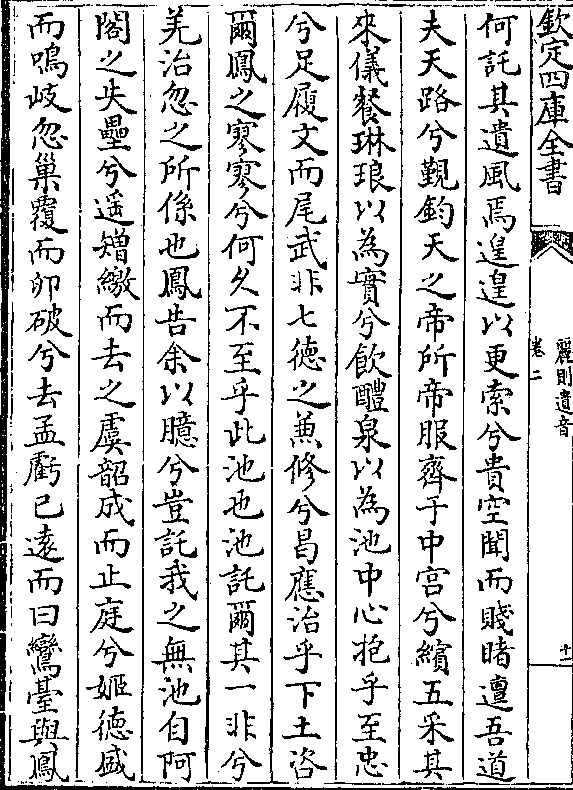 欽定四庫全書
麗則遺音
卷二
十一
何託其遺風焉遑遑以更索兮貴空聞而賤睹邅吾道
夫天路兮覲鈞天之帝所帝服齊于中宫兮繽五采其
來儀餐琳琅以為實兮飲醴泉以為池中心抱乎至忠
兮足履文而尾武非七德之兼修兮曷應治乎下土咨
爾鳳之寥寥兮何久不至乎此池也池託爾其一非兮
羌治忽之所係也鳳告余以臆兮豈託我之無池自阿
閣之失壘兮遥矰繳而去之虞韶成而止庭兮姬德盛
而鳴岐忽巢覆而卵破兮去孟虧已遠而曰鸞臺與鳳